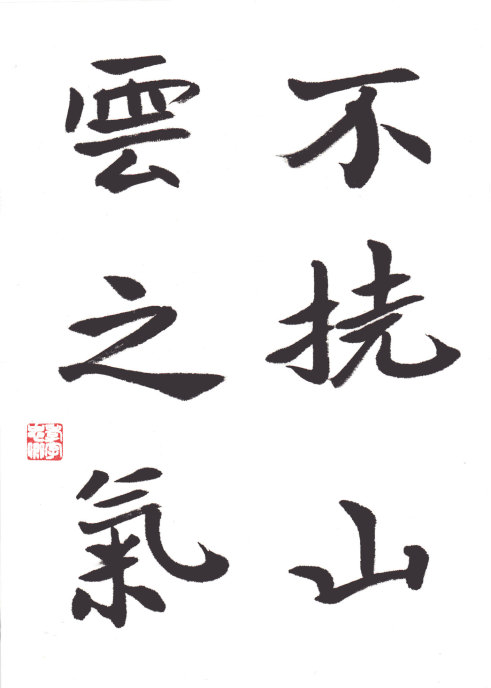 不挠山
雲之氣